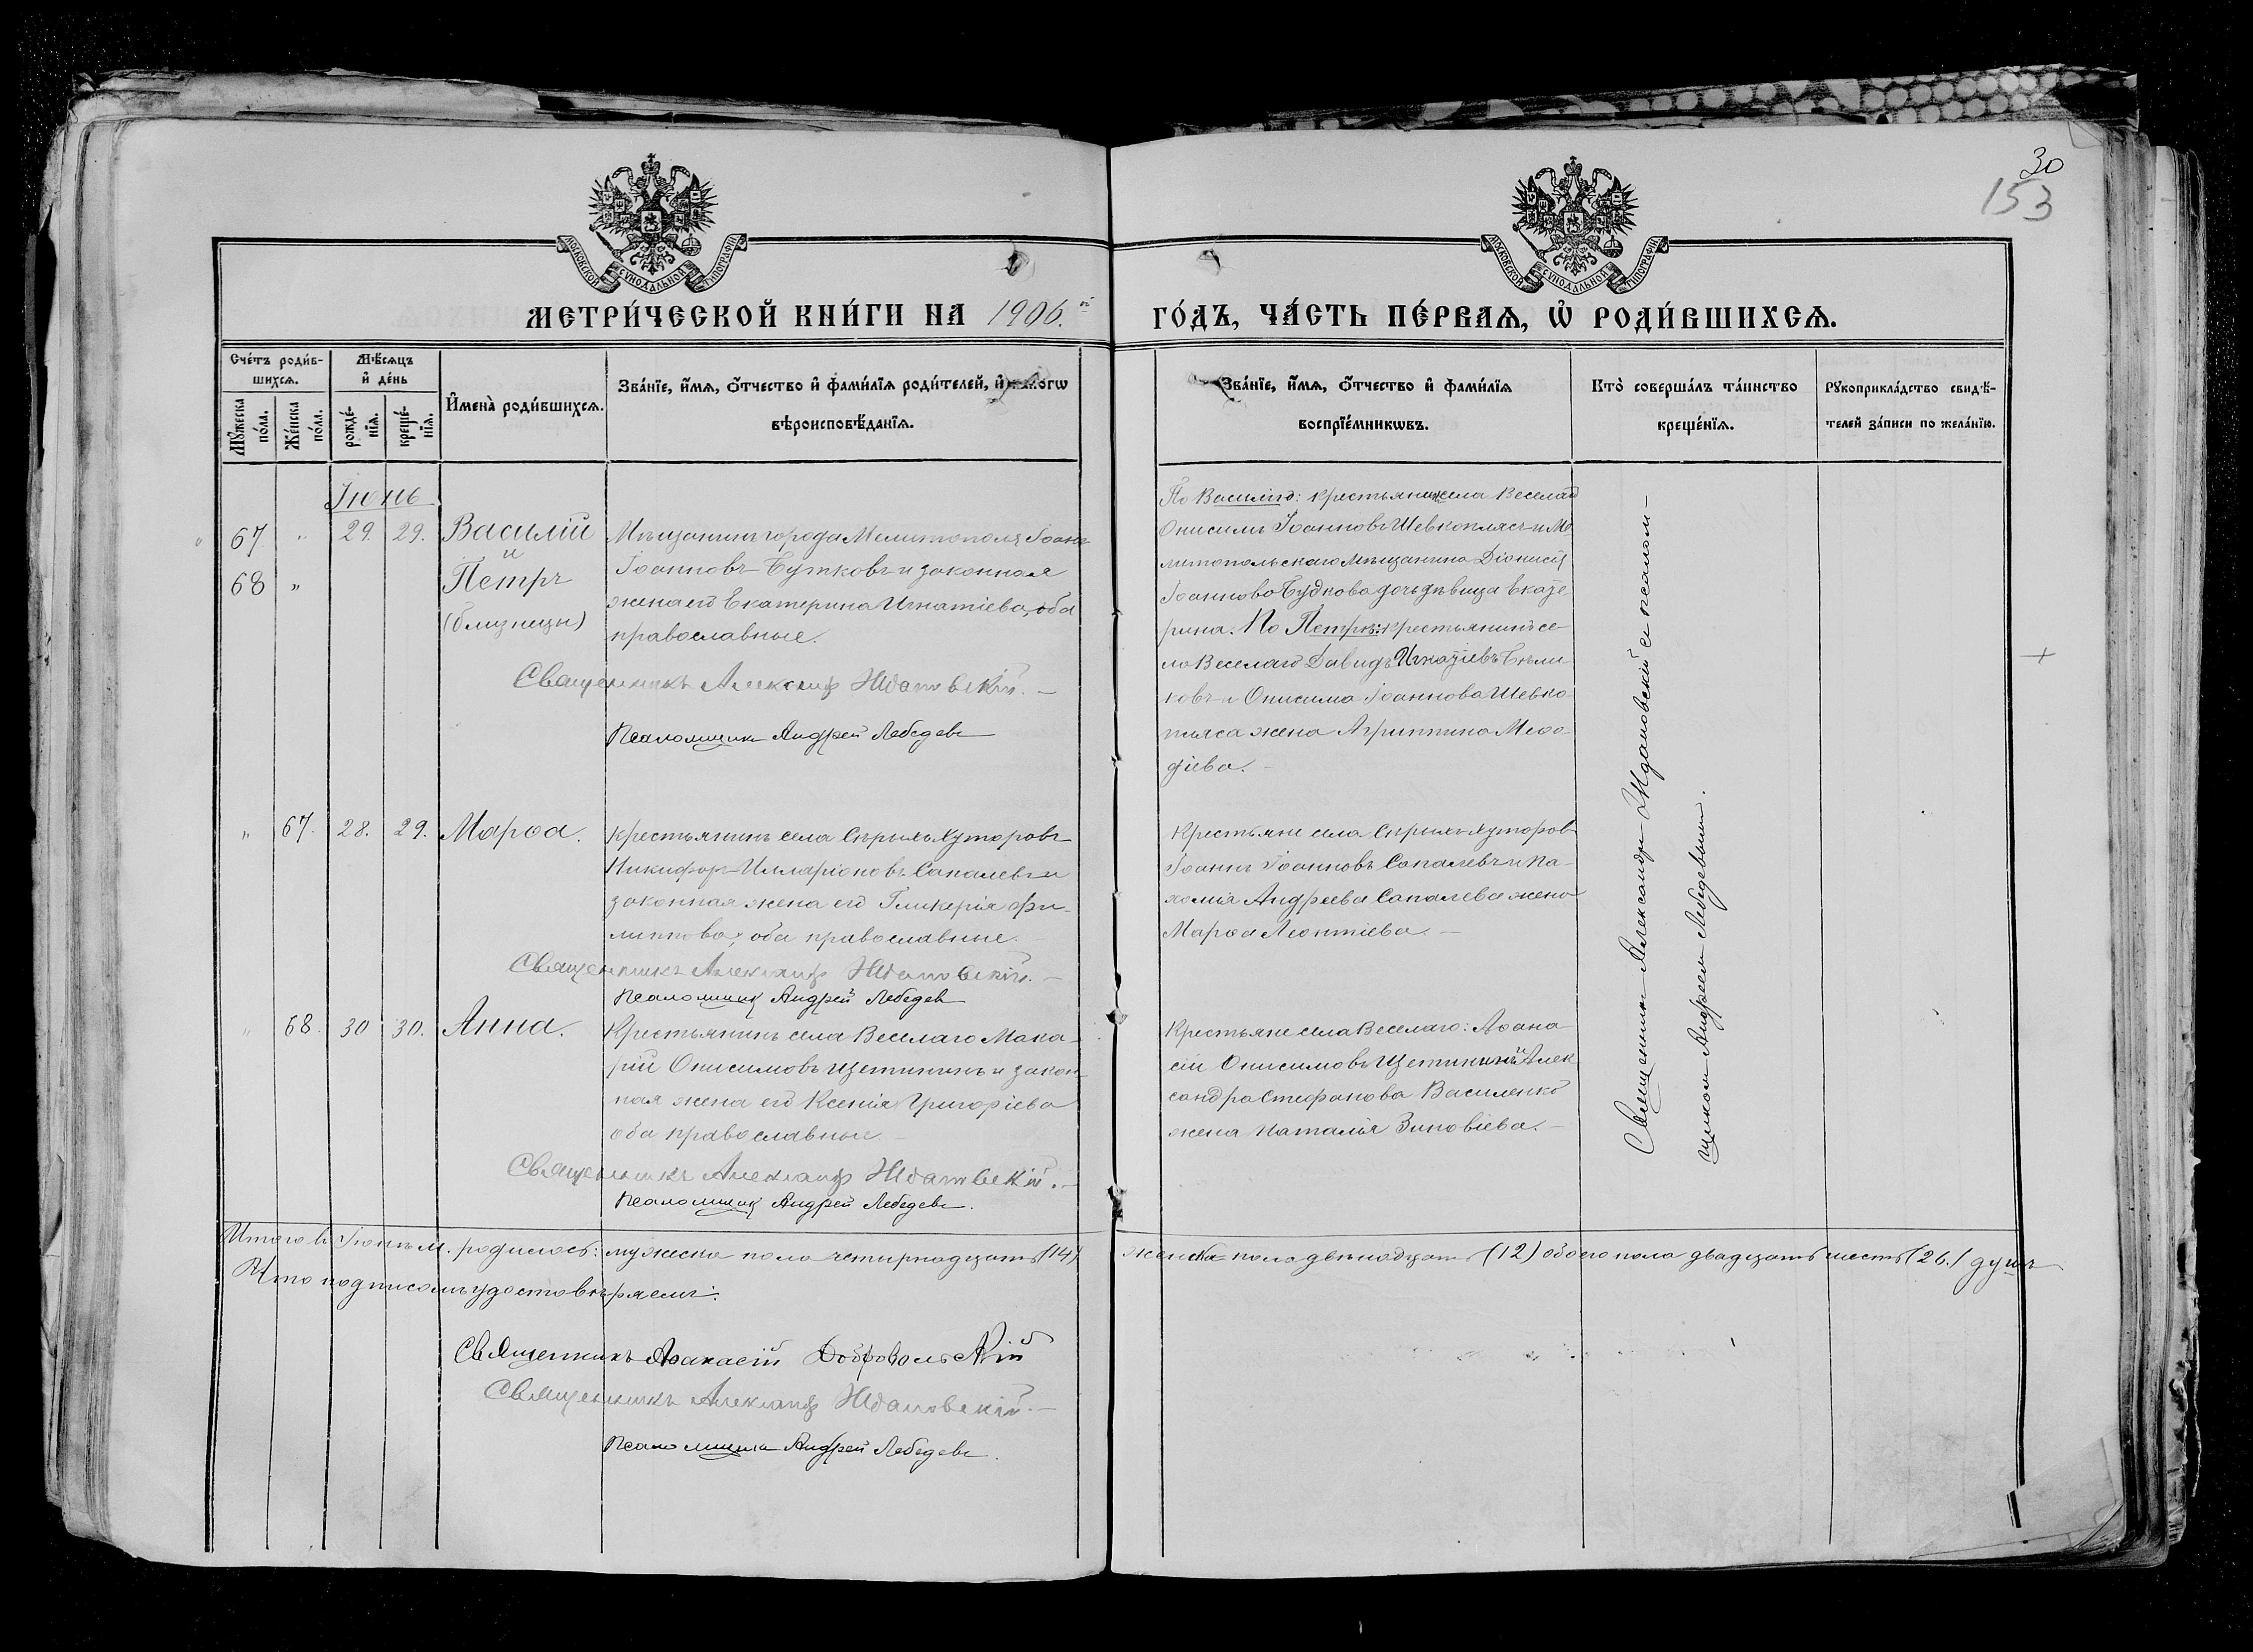 30
153
МОСКОВСКОЙ СУНОДАЛЬНОЙ ТИПОГРАФІИ
МОСКОВСКОЙ СУНОДАЛЬНОЙ ТИПОГРАФІИ
МЕТРИ́ЧЕСКОЙ КНИ́ГИ НА 1906.й ГО́ДЪ, ЧА́СТЬ ПЕ́РВАЯ, Ѡ РОДИ́ВШИХСЯ.
Сче́тъ роди́в-
шихся.
Мѣ́сяцъ
и де́нь
Му́жеска
по́ла.
Же́нска
по́ла.
рожде́-
нїя.
креще́-
нїя.
Имена̀ роди́вшихся.
Зва́нїе, и́мя, о́тчество и фами́лїя роди́телей, и како́гѡ
вѣроисповѣ́данїя.
Зва́нїе, и́мя, о́тчество и фами́лїя
воспрїе́мникѡвъ.
Кто̀ соверша́лъ та́инство
креще́нїя.
Рукоприкла́дство свидѣ́-
телей за́писи по жела́нїю.
Іюнь
67 " 29. 29. Василій
и
68 " Петръ
(близнецы)
Мѣщанинъ города Мелитополя Іоаннъ
Іоанновъ Бутковъ и законная
жена его Екатерина Игнатіева, оба
православные.
Священникъ Александръ Ждановскій.
Псаломщикъ Андрей Лебедевъ
По Василію: крестьянинъ села Веселаго
Онисимъ Іоанновъ Шевкоплясъ и Ме
литопольскаго мѣщанина Діонисія
Іоаннова Будкова дочь дѣвица Екате
рина. По Петрѣ: крестьянинъ се-
ла Веселаго Давидъ Игнатіевъ Бѣли-
ковъ и Онисима Іоаннова Шевко
пляса жена Агриппина Меѳо-
діева.
" 67. 28. 29. Марѳа.
Крестьянинъ села Сѣрыхъ Хуторовъ
Никифоръ Илларіоновъ Сапалевъ и
законная жена его Гликерія Фи-
липпова, оба православные.
Священникъ Александръ Ждановскій.
Псаломщикъ Андрей Лебедевъ
Крестьяне села Сѣрыхъ Хуторовъ
Іоаннъ Іоанновъ Сапалевъ и Па-
хомія Андреева Сапалева жена
Марѳа Леонтіева.
" 68. 30 30. Анна.
Крестьянинъ села Веселаго Мака-
рій Онисимовъ Щетининъ и закон-
ная жена его Ксенія Григоріева
оба православные
Священникъ Александръ Ждановскій.
Псаломщикъ Андрей Лебедевъ.
Крестьяне села Веселаго: Аѳана-
сій Онисимовъ Щетининъ и Алек
сандра Стефанова Василенко
жена Наталія Зиновіева.
Священникъ Александръ Ждановскій съ псалом-
щикомъ Андреемъ Лебедевымъ.
Итого въ Іюнѣ м. родилось: мужеска пола четырнадцать (14) женска пола двѣнадцать (12) обоего пола двадцать шесть (26.) душъ
Что подписомъ удостовѣряемъ:
Священникъ Аѳанасій Добровольскій
Священникъ Александръ Ждановскій.
Псаломщикъ Андрей Лебедевъ.